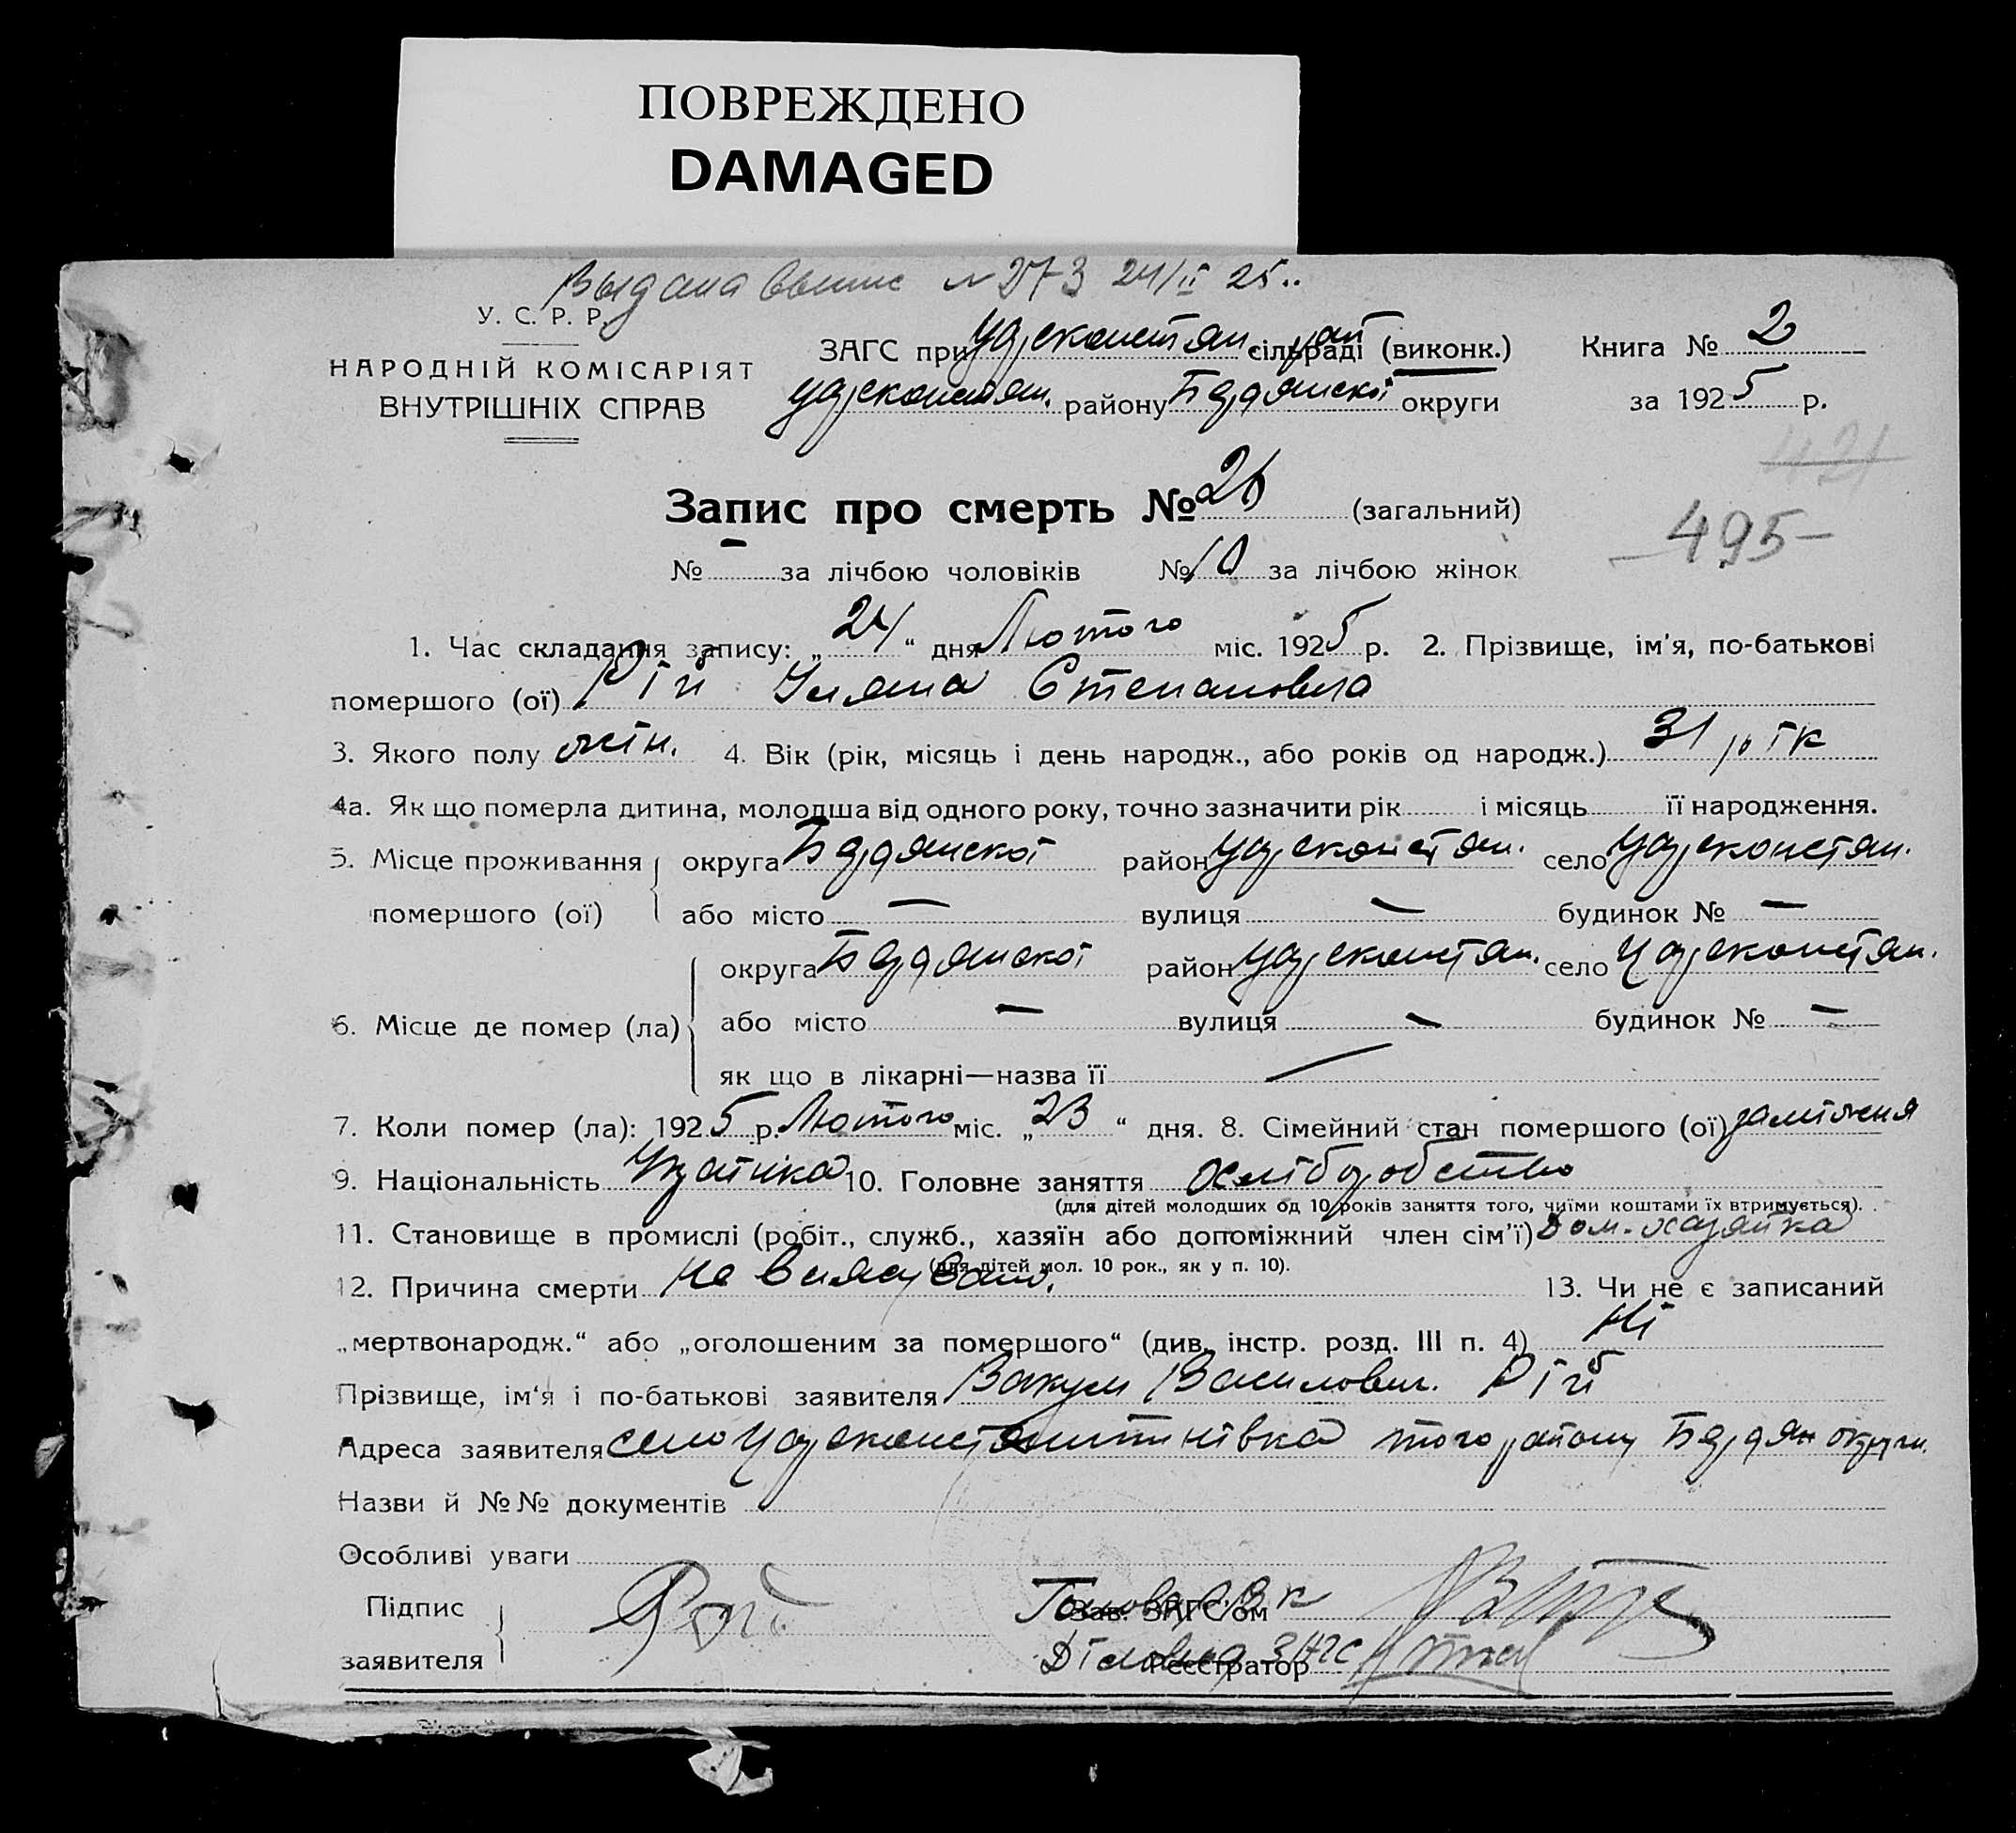 ПОВРЕЖДЕНО
DAMAGED
Выдана выпис №273 24/II 25..
У. С. Р. Р.
НАРОДНІЙ КОМІСАРІЯТ
ВНУТРІШНІХ СПРАВ
ЗАГС при Царсконстян рай сільраді (виконк.)
Царсконстян. району Бердянської округи
Книга № 2
за 1925 р.
421
Запис про смерть № 26 (загальний)
– 495 –
№ – за лічбою чоловіків № 10 за лічбою жінок
1. Час складання запису: „24“ дня Лютого міс. 1925 р. 2. Прізвище, ім'я, по-батькові
помершого (ої) Рій Уляна Степановна
3. Якого полу жін. 4. Вік (рік, місяць і день народж., або років од народж.) 31 рік
4а. Як що померла дитина, молодша від одного року, точно зазначити рік і місяць її народження.
5. Місце проживання помершого (ої)
округа Бердянської район Царсконстян. село Царсконстян.
або місто — вулиця — будинок № —
6. Місце де помер (ла)
округа Бердянської район Царсконстян. село Царсконстян.
або місто — вулиця — будинок № —
як що в лікарні—назва її —
7. Коли помер (ла): 1925 р. Лютого міс. „23“ дня. 8. Сімейний стан помершого (ої) заміжня
9. Національність Україінка 10. Головне заняття хліборобство
(для дітей молодших од 10 років заняття того, чиїми коштами їх втримується).
11. Становище в промислі (робіт., служб., хазяїн або допоміжний член сім'ї) Дом. хазяйка
(для дітей мол. 10 рок., як у п. 10).
12. Причина смерти не виясовано. 13. Чи не є записаний
„мертвонародж.“ або „оголошеним за помершого“ (див. інстр. розд. III п. 4) Ні
Прізвище, ім'я і по-батькові заявителя Вакул Василович. Рій
Адреса заявителя село Царсконстянтинівка того району Бердян округи.
Назви й №№ документів
Особливі уваги
Підпис
заявителя
Голова РВК
Зав. ЗАГС'ом
Діловод ЗАГС
Реєстратор